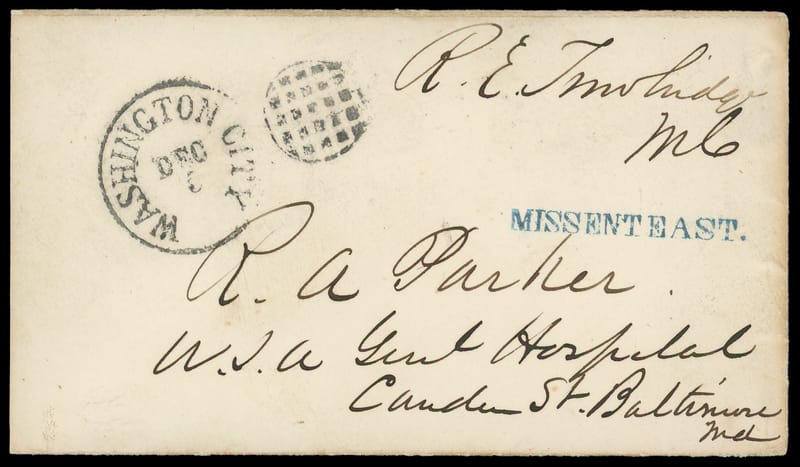 R. E. Trowbridge
M C
WASHINGTON CITY
DEC
MISSENT EAST.
R. A Parker.
U. S. A Genl Hospital
Camden St. Baltimore
Md